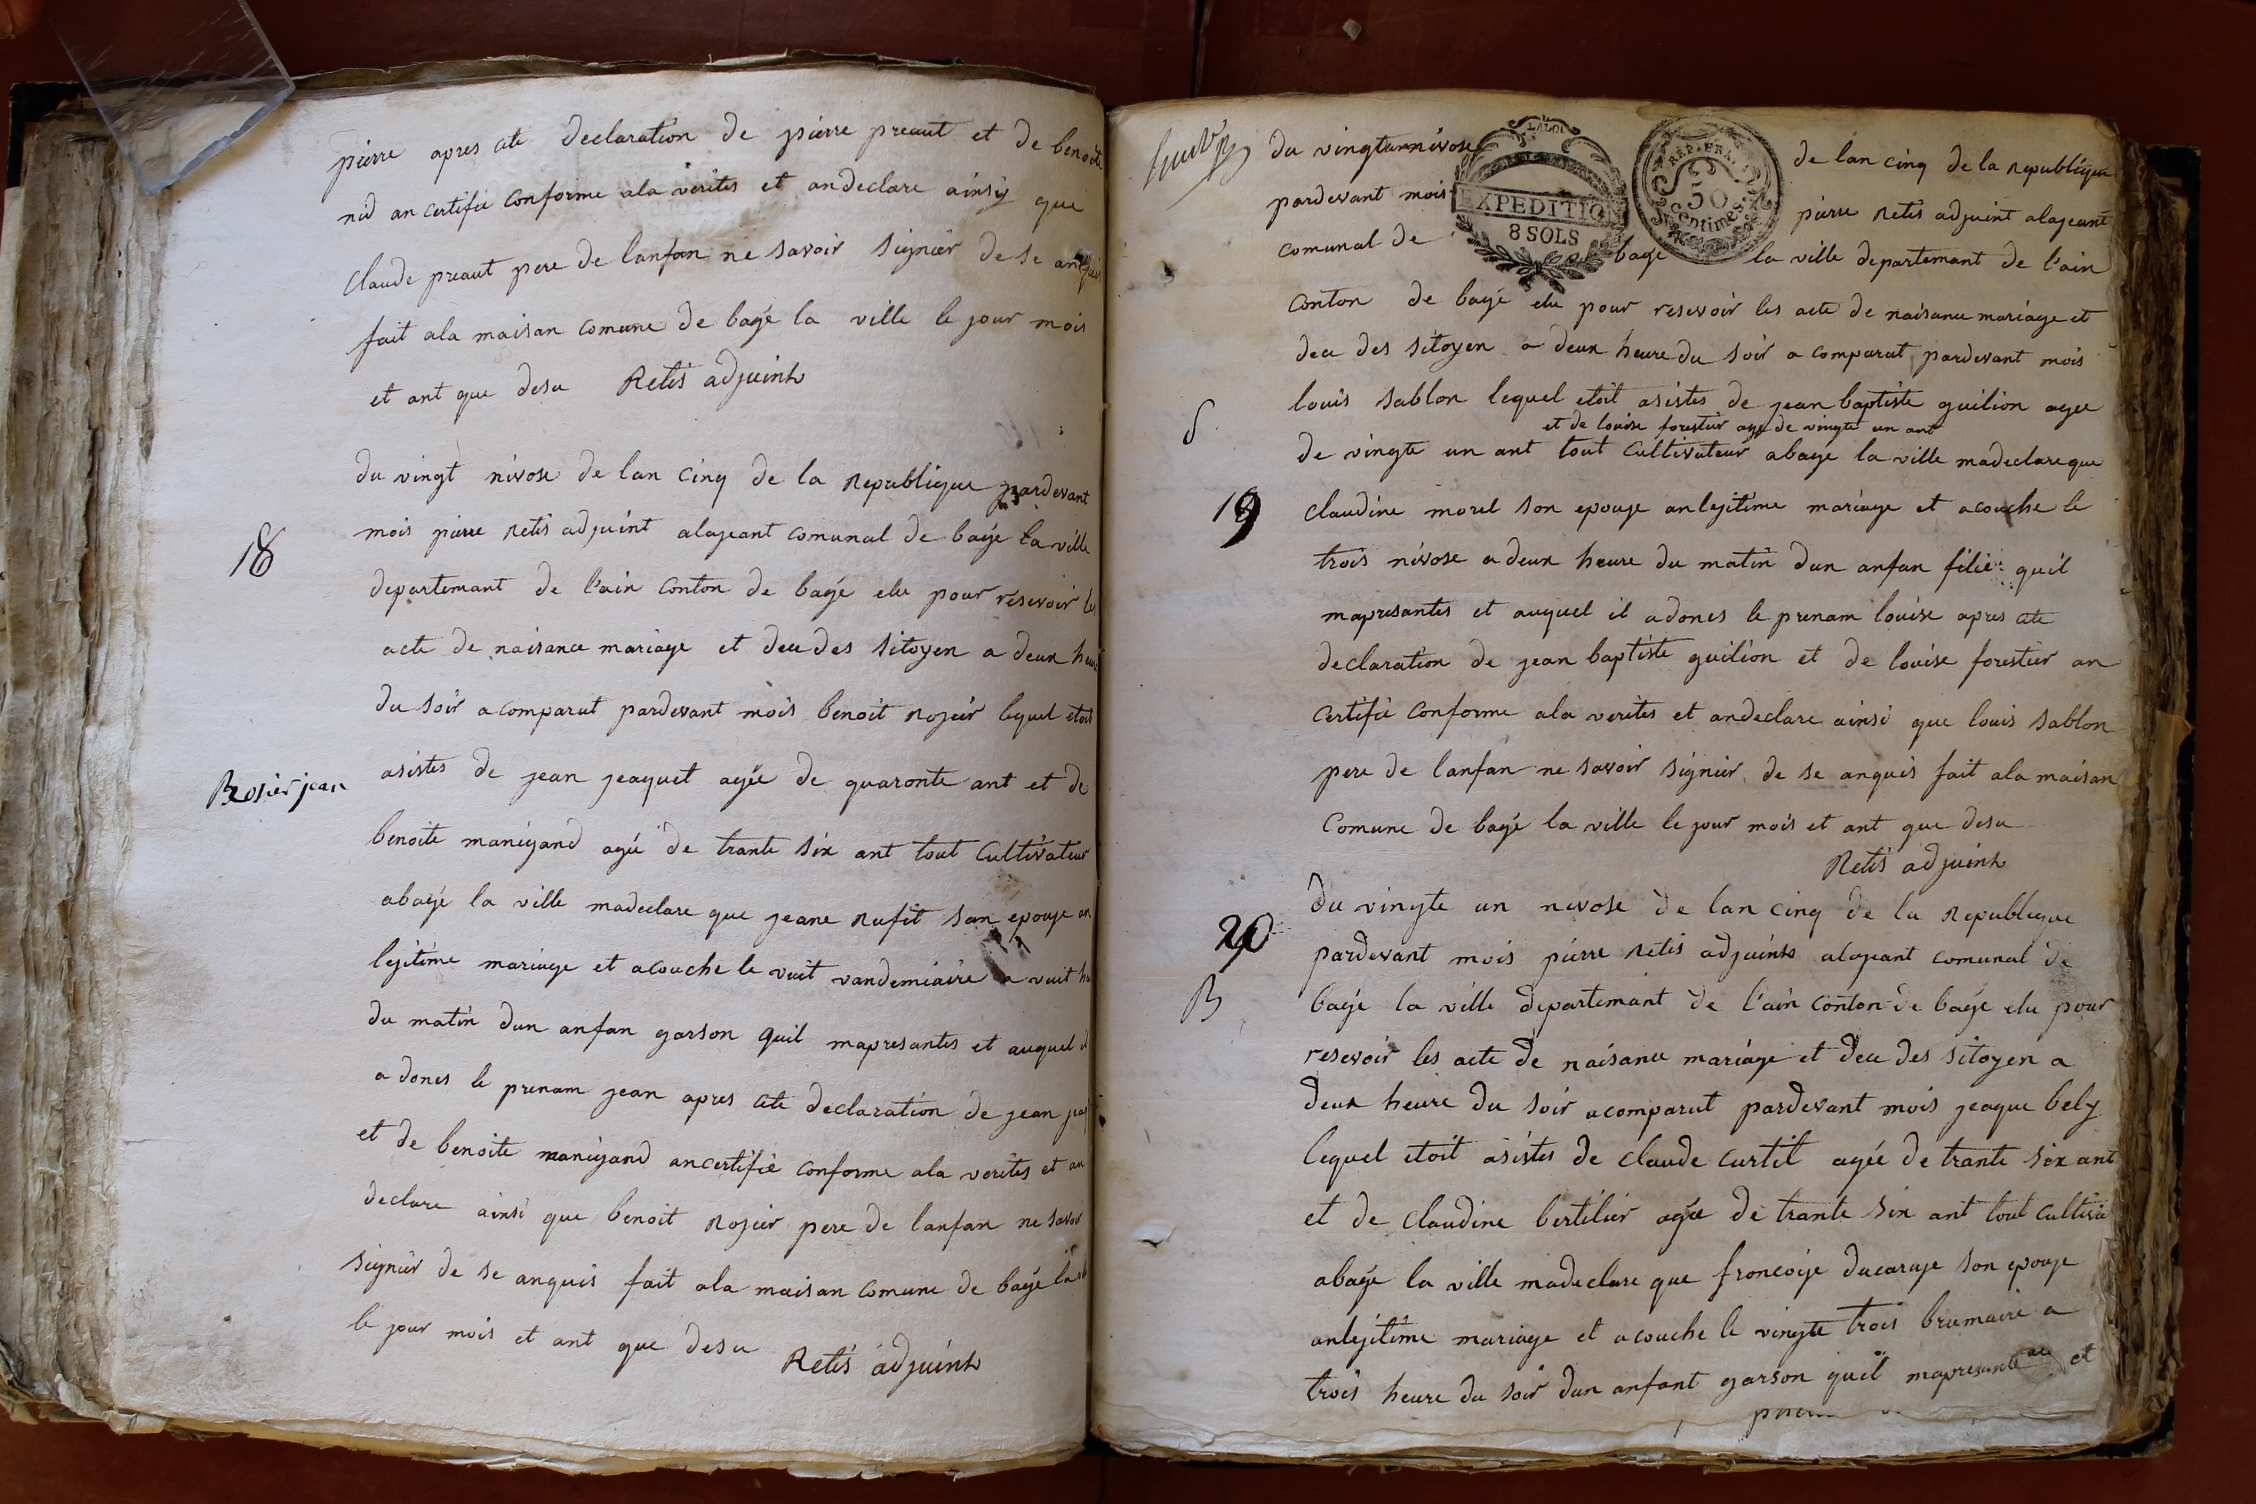 pierre apres cete declaration de pierre preaut et de benoite
nid an certifie conforme ala verites et andeclare ainsy que
claude preaut pere de lanfan ne savoir signier de se anquis
fait ala maisan comune de bagé la ville le jour mois
et ant que desu Retis adjuint
18
du vingt nivose de lan cinq de la Republique pardevant
mois pierre Retis adjuint alageant comunal de bagé la ville
departemant de l'ain conton de bagé elu pour resevoir les
acte de naisance mariage et dece des sitoyen a deux heure
du soir a comparut pardevant mois benoit Rosier lequel etoit
Rosier jean
asistes de jean jeaquet agée de quaronte ant et de
benoite manigand agé de trante six ant tout cultivateur
abagé la ville madeclare que jeane Rufit son epouje an
lejitime mariage et acouche le vuit vandemiaire a vuit heu
du matin dun anfan garson quil mapresantes et auquel il
a dones le prenam jean apres cete declaration de jean jea
et de benoite manigand ancertifié conforme ala verites et an
declare ainsi que benoit Rosier pere de lanfan ne savoir
signier de se anquis fait ala maisan comune de bagé la
le jour mois et ant que desu Retis adjuint
du vingtunnivose de lan cinq de la Republique
LALOI
EXPEDITION
8 SOLS
REP. FRA.
50
Centimes
pardevant mois pierre Retis adjuint alageant
comunal de bagé la ville departemant de l'ain
conton de bagé elu pour resevoir les acte de naisance mariage et
dece des sitoyen a deux heure du soir a comparut pardevant mois
louis sablon lequel etoit asistes de jean baptiste guilion agee
et de louise forestier age de vingte un ant
S
de vingte un ant tout cultivateur abage la ville madeclare que
19
claudine morel son epouje anlejitime mariage et acouche le
trois nivose a deux heure du matin dun anfan filie quil
mapresantes et auquel il adones le prenam louise apres cete
declaration de jean baptiste guilion et de louise forestier an
certifie conforme ala verites et andeclare ainsi que louis sablon
pere de lanfan ne savoir signier de se anquis fait ala maisan
comune de bagé la ville le jour mois et ant que desu
Retis adjuint
20
du vingte un nivose de lan cinq de la Republique
pardevant mois pierre Retis adjuint alageant comunal de
B
bagé la ville departemant de l'ain conton de bagé elu pour
resevoir les acte de naisance mariage et dece des sitoyen a
deux heure du soir acomparut pardevant mois jeaque bely
lequel etoit asistes de claude curtil agée de trante six ant
et de claudine bertilier agée de trante six ant tout cultiva
abagé la ville madeclare que froncoije ducaruje son epouje
anlejitime mariage et acouche le vingte trois brumaire a
trois heure du soir dun anfant garson quil mapresante et